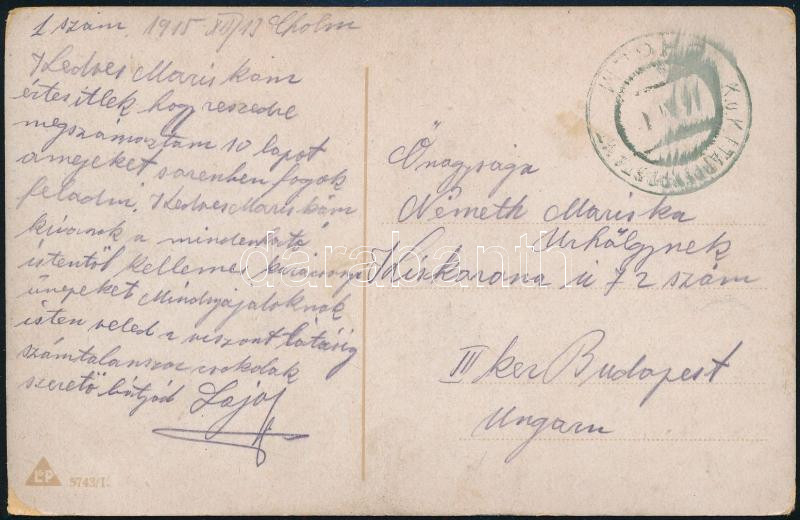 1 szám. 1915 XII/13 Cholm
Kedves Mariskám
értesitlek hogy reszedre
megszámoztam 10 lapot
amejeket sorenben fogok
feladni, Kedves Mariskám
kivanok a mindenható
istentöl kellemes karácsonyi
ünepeket Mindnyájatoknak
isten veled a viszont látásig
számtalanszor csokolak
szerető bátyád Lajos
LP 5743/I.
Önagysága
Németh Mariska
Urhölgynek
Kiskorona u 72 szám
III ker Budapest
Ungarn
K.u.K. ETAPPENPOSTAMT
CHOLM
darabanth